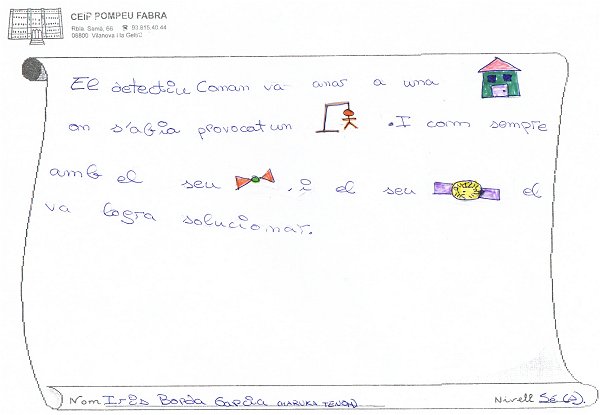 CEIP POMPEU FABRA
Rbla. Samà, 66 ☎ 93.815.40.44
08800 Vilanova i la Geltrú
El detectiu Conan va anar a una
on s'abia provocat un . I com sempre
amb el seu , i el seu el
va logra solucionar.
Nom Iris Borda Garcia
Nivell 5é